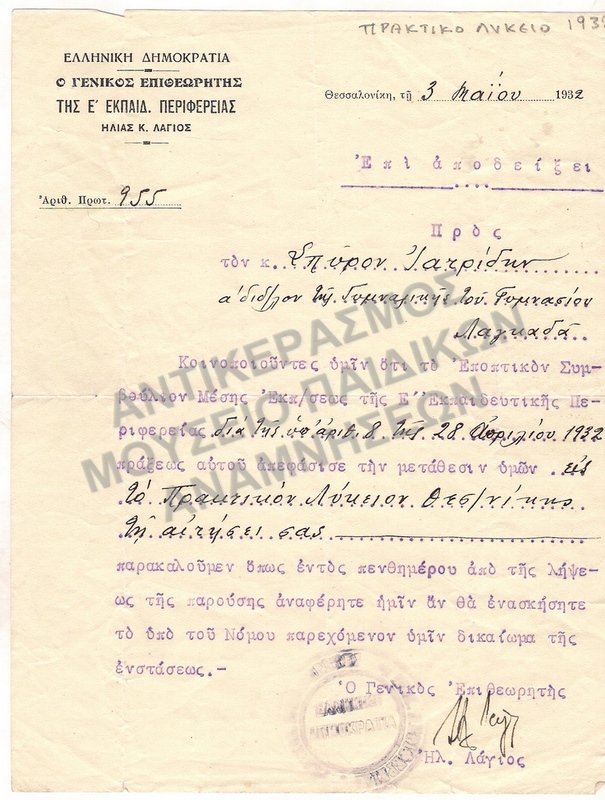 ΠΡΑΚΤΙΚΟ ΛΥΚΕΙΟ 193
ΕΛΛΗΝΙΚΗ ΔΗΜΟΚΡΑΤΙΑ
Ο ΓΕΝΙΚΟΣ ΕΠΙΘΕΩΡΗΤΗΣ
ΤΗΣ Ε' ΕΚΠΑΙΔ. ΠΕΡΙΦΕΡΕΙΑΣ
ΗΛΙΑΣ Κ. ΛΑΓΙΟΣ
Θεσσαλονίκη, τῇ 3 Μαΐου 1932
Ἐπὶ ἀποδείξει
Ἀριθ. Πρωτ. 955
Πρὸς
τὸν κ. Σπῦρον Ἰατρίδην
τῆς Γυμναστικῆς τοῦ Γυμνασίου
Λαγκαδᾶ
Κοινοποιοῦντες ὑμῖν ὅτι τὸ Ἐποπτικὸν Συμ-
βούλιον Μέσης Ἐκπ/σεως τῆς Ε' Ἐκπαιδευτικῆς Πε-
ριφερείας διὰ τῆς ὑπ' ἀριθ. 8 τῆς 28 Ἀπριλίου 1932
πράξεως αὐτοῦ ἀπεφάσισε τὴν μετάθεσιν ὑμῶν εἰς
τὸ Πρακτικὸν Λύκειον Θεσ/νίκης
τῇ αἰτήσει σας
παρακαλοῦμεν ὅπως ἐντὸς πενθημέρου ἀπὸ τῆς λήψε-
ως τῆς παρούσης ἀναφέρητε ἡμῖν ἂν θὰ ἐνασκήσητε
τὸ ὑπὸ τοῦ Νόμου παρεχόμενον ὑμῖν δικαίωμα τῆς
ἐνστάσεως.-
Ὁ Γενικὸς Ἐπιθεωρητὴς
Ἠλ. Λάγιος
ΑΝΤΙΚΕΡΑΣΜΟΣ
ΜΟΥΣΕΙΟ ΠΑΙΔΙΚΩΝ
ΑΝΑΜΝΗΣΕΩΝ